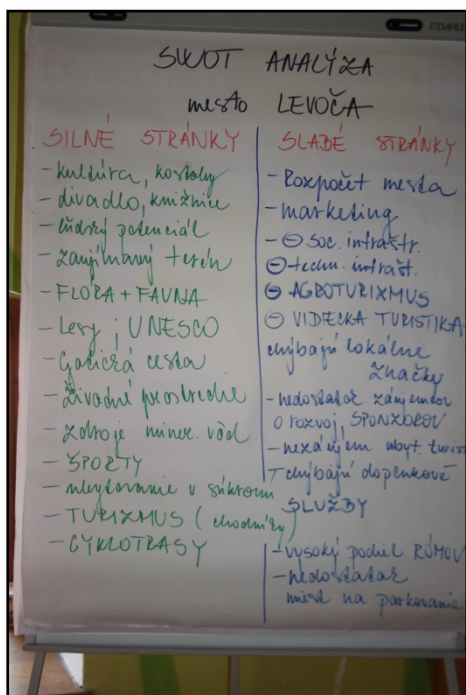 SWOT ANALÝZA
mesto LEVOČA
SILNÉ STRÁNKY
- kultúra, kostoly
- divadlo, knižnice
- ľudský potenciál
- zaujímavý terén
- FLORA + FAUNA
- Lesy, UNESCO
- Gotická cesta
- Životné prostredie
- zdroje miner. vôd
- ŠPORTY
- ubytovanie v súkromí
- TURIZMUS (chodníky)
- CYKLOTRASY
SLABÉ STRÁNKY
- Rozpočet mesta
- marketing
- ⊖ soc. infraštr.
⊖ techn. infrašt.
⊖ AGROTURIZMUS
⊖ VIDECKA TURISTIKA
chýbajú lokálne
značky
- nedostatok záujemcov
o rozvoj, SPONZOROV
- nezáujem ubyt. turis
chýbajú doplnkové
SLUŽBY
- vysoký podiel RÓMOV
- nedostatok
miest na parkovanie